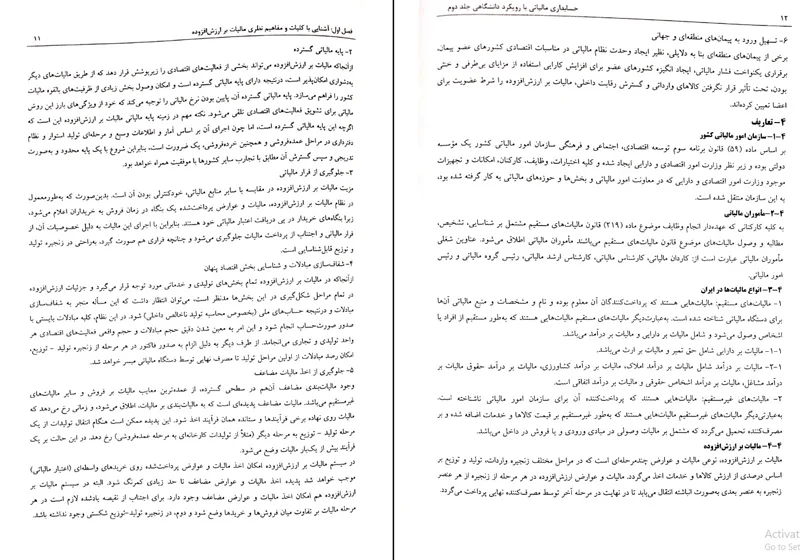 فصل اول: آشنایی با کلیات و مفاهیم نظری مالیات بر ارزش‌افزوده ۱۱
۲- پایه مالیاتی گسترده
ازآنجاکه مالیات بر ارزش‌افزوده می‌تواند بخشی از فعالیت‌های اقتصادی را زیرپوشش قرار دهد که از طریق مالیات‌های دیگر
به‌دشواری امکان‌پذیر است، درنتیجه دارای پایه مالیاتی گسترده است و امکان وصول بخش زیادی از ظرفیت‌های بالقوه مالیات
کشور را فراهم می‌سازد. پایه مالیاتی گسترده آن، پایین بودن نرخ مالیاتی را توجیه می‌کند که خود از ویژگی‌های بارز این روش
مالیاتی برای تشویق فعالیت‌های اقتصادی تلقی می‌شود. نکته مهم در زمینه پایه مالیاتی مالیات بر ارزش‌افزوده این است که
اگرچه این پایه مالیاتی گسترده است، اما چون اجرای آن بر اساس آمار و اطلاعات وسیع و مرحله‌ای تولید استوار و نظام
دفترداری در مراحل عمده‌فروشی و همچنین خرده‌فروشی، یک ضرورت است، بنابراین شروع با یک پایه محدود و به‌صورت
تدریجی و سپس گسترش آن مطابق با تجارب سایر کشورها با موفقیت همراه خواهد بود.
۳- جلوگیری از فرار مالیاتی
مزیت مالیات بر ارزش‌افزوده در مقایسه با سایر منابع مالیاتی، خودکنترلی بودن آن است. بدین‌صورت که به‌طورمعمول
در نظام مالیات بر ارزش‌افزوده، مالیات و عوارض پرداخت‌شده یک بنگاه در زمان فروش به خریداران اعلام می‌شود،
زیرا بنگاه‌های خریدار در پی دریافت اعتبار مالیاتی خود هستند. بنابراین با اجرای این مالیات به دلیل خصوصیات آن، از
فرار مالیاتی و اجتناب از پرداخت مالیات جلوگیری می‌شود و چنانچه فراری هم صورت گیرد، به‌راحتی در زنجیره تولید
و توزیع قابل‌شناسایی است.
۴- شفاف‌سازی مبادلات و شناسایی بخش اقتصاد پنهان
ازآنجاکه در مالیات بر ارزش‌افزوده تمام بخش‌های تولیدی و خدماتی مورد توجه قرار می‌گیرد و جزئیات ارزش‌افزوده
در تمام مراحل شکل‌گیری در این بخش‌ها مدنظر است، می‌توان انتظار داشت که این مسأله منجر به شفاف‌سازی
مبادلات و درنتیجه حساب‌های ملی (بخصوص محاسبه تولید ناخالص داخلی) شود. در این نظام، کلیه مبادلات بایستی با
صدور صورت‌حساب انجام شود و این امر به معین شدن دقیق حجم مبادلات و حجم واقعی فعالیت‌های اقتصادی هر
واحد تولیدی و تجاری می‌انجامد. از طرف دیگر به دلیل الزام به صدور فاکتور در هر مرحله از زنجیره تولید - توزیع،
امکان رصد مبادلات از اولین مراحل تولید تا مصرف نهایی توسط دستگاه مالیاتی میسر خواهد شد.
۵- جلوگیری از اخذ مالیات مضاعف
وجود مالیات‌بندی مضاعف آن‌هم در سطحی گسترده، از عمده‌ترین معایب مالیات بر فروش و سایر مالیات‌های
غیرمستقیم می‌باشد. مالیات مضاعف پدیده‌ای است که به مالیات‌بندی بر مالیات، اطلاق می‌شود، و زمانی رخ می‌دهد که
مالیات روی نهاده برخی فرآیندها و ستانده همان فرآیند اخذ شود. این پدیده ممکن است هنگام انتقال تولیدات از یک
مرحله تولید - توزیع به مرحله دیگر (مثلاً از تولیدات کارخانه‌ای به مرحله عمده‌فروشی) رخ دهد. در این حالت بر یک
فرآیند بیش از یک‌بار مالیات وضع می‌شود.
در سیستم مالیات بر ارزش‌افزوده امکان اخذ مالیات و عوارض پرداخت‌شده روی خریدهای واسطه‌ای (اعتبار مالیاتی)
موجب خواهد شد پدیده اخذ مالیات و عوارض مضاعف تا حد زیادی کمرنگ شود. البته در سیستم مالیات بر
ارزش‌افزوده هم امکان اخذ مالیات و عوارض مضاعف وجود دارد. برای اجتناب از نقیصه یادشده لازم است در هر
مرحله مالیات بر تفاوت میان فروش‌ها و خریدها وضع شود و دوم، در زنجیره تولید-توزیع شکستی وجود نداشته باشد.
۱۲ حسابداری مالیاتی با رویکرد دانشگاهی جلد دوم
۶- تسهیل ورود به پیمان‌های منطقه‌ای و جهانی
برخی از پیمان‌های منطقه‌ای بنا به دلایلی، نظیر ایجاد وحدت نظام مالیاتی در مناسبات اقتصادی کشورهای عضو پیمان،
برقراری یکنواخت فشار مالیاتی، ایجاد انگیزه کشورهای عضو برای افزایش کارایی استفاده از مزایای بی‌طرفی و خنثی
بودن، تحت تأثیر قرار نگرفتن کالاهای وارداتی و گسترش رقابت داخلی، مالیات بر ارزش‌افزوده را شرط عضویت برای
اعضا تعیین کرده‌اند.
۴- تعاریف
۱-۴- سازمان امور مالیاتی کشور
بر اساس ماده (۵۹) قانون برنامه سوم توسعه اقتصادی، اجتماعی و فرهنگی سازمان امور مالیاتی کشور یک مؤسسه
دولتی بوده و زیر نظر وزارت امور اقتصادی و دارایی ایجاد شده و کلیه اختیارات، وظایف، کارکنان، امکانات و تجهیزات
موجود وزارت امور اقتصادی و دارایی که در معاونت امور مالیاتی و بخش‌ها و حوزه‌های مالیاتی به کار گرفته شده بود،
به این سازمان منتقل شده است.
۲-۴- مأموران مالیاتی
به کلیه کارکنانی که عهده‌دار انجام وظایف موضوع ماده (۲۱۹) قانون مالیات‌های مستقیم مشتمل بر شناسایی، تشخیص،
مطالبه و وصول مالیات‌های موضوع قانون مالیات‌های مستقیم می‌باشند مأموران مالیاتی اطلاق می‌شود. عناوین شغلی
مأموران مالیاتی عبارت است از: کاردان مالیاتی، کارشناس مالیاتی، کارشناس ارشد مالیاتی، رئیس گروه مالیاتی و رئیس
امور مالیاتی.
۳-۴- انواع مالیات‌ها در ایران
۱- مالیات‌های مستقیم: مالیات‌هایی هستند که پرداخت‌کنندگان آن معلوم بوده و نام و مشخصات و منبع مالیاتی آن‌ها
برای دستگاه مالیاتی شناخته شده است. به‌عبارت‌دیگر مالیات‌های مستقیم مالیات‌هایی هستند که به‌طور مستقیم از افراد یا
اشخاص وصول می‌شود و شامل مالیات بر دارایی و مالیات بر درآمد می‌باشد.
۱-۱- مالیات بر دارایی شامل حق تمبر و مالیات بر ارث می‌باشد.
۲-۱- مالیات بر درآمد شامل مالیات بر درآمد املاک، مالیات بر درآمد کشاورزی، مالیات بر درآمد حقوق مالیات بر
درآمد مشاغل، مالیات بر درآمد اشخاص حقوقی و مالیات بر درآمد اتفاقی است.
۲- مالیات‌های غیرمستقیم: مالیات‌هایی هستند که پرداخت‌کننده آن برای سازمان امور مالیاتی ناشناخته است.
به‌عبارتی‌دیگر مالیات‌های غیرمستقیم مالیات‌هایی هستند که به‌طور غیرمستقیم بر قیمت کالاها و خدمات اضافه شده و بر
مصرف‌کننده تحمیل می‌گردد که مشتمل بر مالیات وصولی در مبادی ورودی و یا فروش در داخل می‌باشد.
۴-۴- مالیات بر ارزش‌افزوده
مالیات بر ارزش‌افزوده، نوعی مالیات و عوارض چندمرحله‌ای است که در مراحل مختلف زنجیره واردات، تولید و توزیع بر
اساس درصدی از ارزش کالاها و خدمات اخذ می‌گردد. مالیات بر ارزش‌افزوده در هر مرحله از زنجیره از هر عنصر
زنجیره به عنصر بعدی به‌صورت انباشته انتقال می‌یابد تا در نهایت در مرحله آخر توسط مصرف‌کننده نهایی پرداخت می‌گردد.
Activat
Go to Set